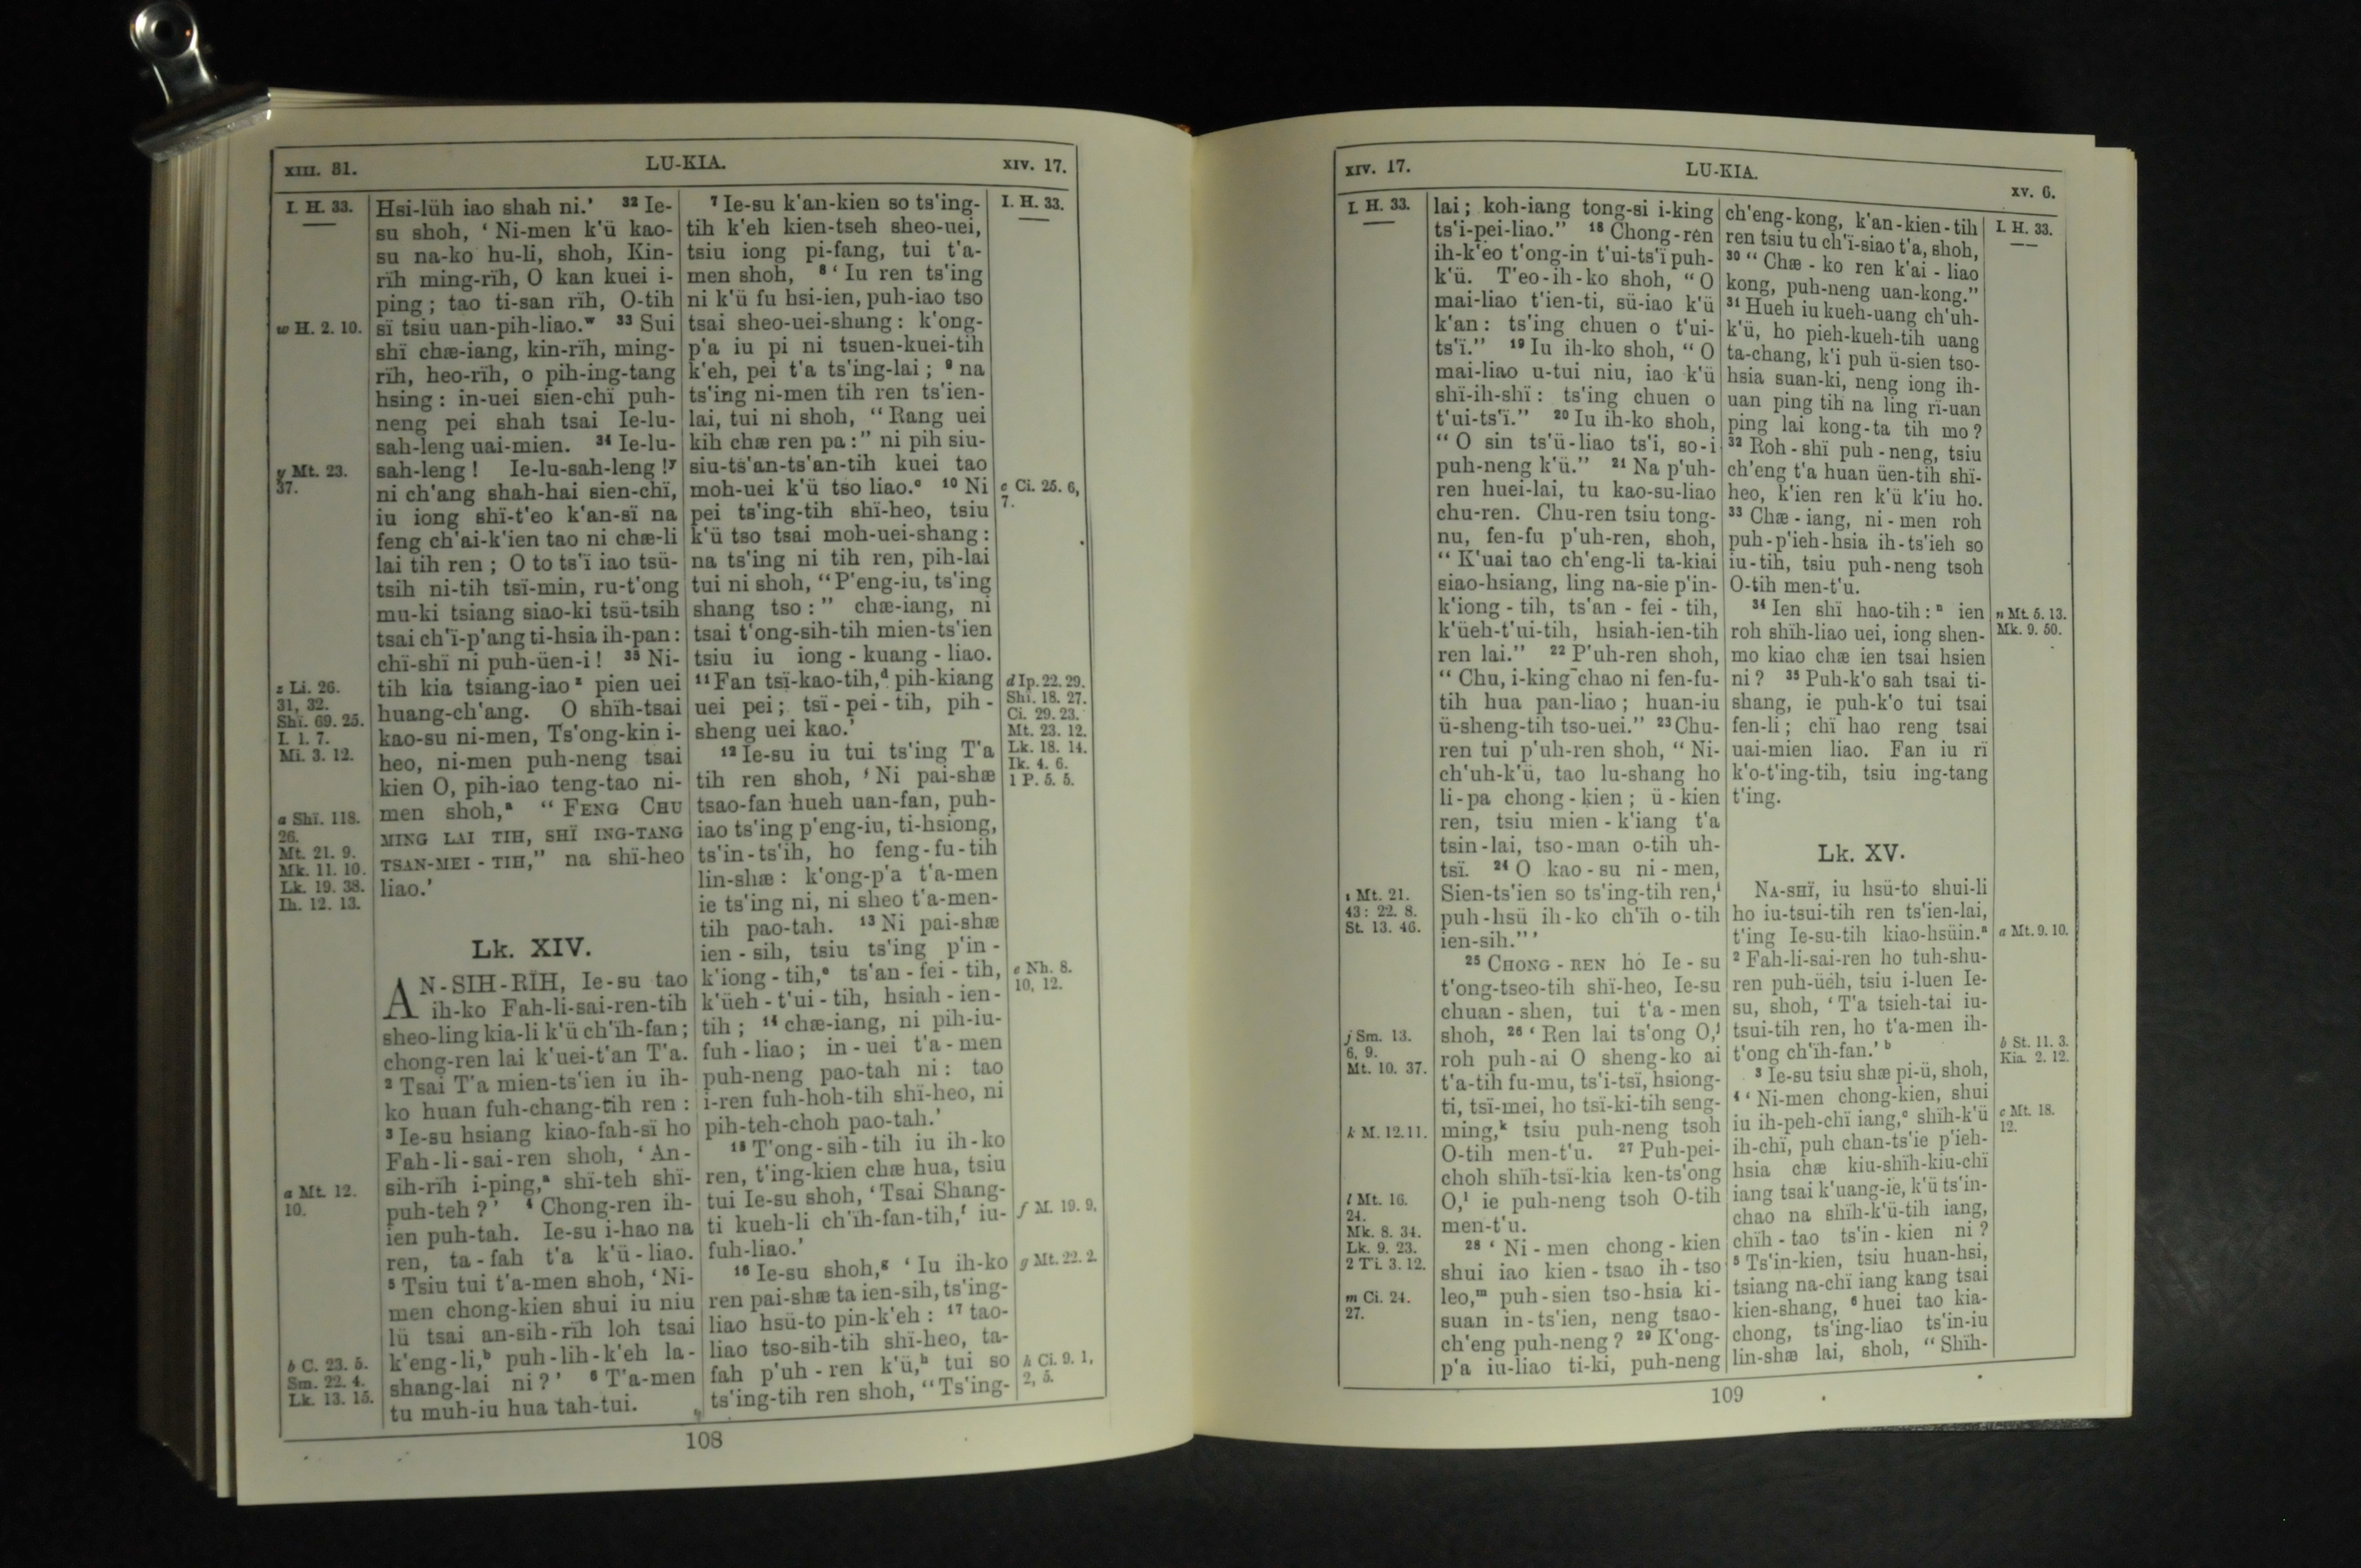 XIII. 31.
LU-KIA.
XIV. 17.
I. H. 33.
w H. 2. 10.
y Mt. 23.
37.
z Li. 26.
31, 32.
Shï. 69. 25.
I. 1. 7.
Mi. 3. 12.
a Shï. 118.
26.
Mt. 21. 9.
Mk. 11. 10.
Lk. 19. 38.
Ih. 12. 13.
a Mt. 12.
10.
b C. 23. 5.
Sm. 22. 4.
Lk. 13. 15.
Hsi-lüh iao shah ni.’ 32 Ie-
su shoh, ‘ Ni-men k'ü kao-
su na-ko hu-li, shoh, Kin-
rïh ming-rïh, O kan kuei i-
ping ; tao ti-san rïh, O-tih
sï tsiu uan-pih-liao.w 33 Sui
shï chæ-iang, kin-rïh, ming-
rïh, heo-rïh, o pih-ing-tang
hsing : in-uei sien-chï puh-
neng pei shah tsai Ie-lu-
sah-leng uai-mien. 34 Ie-lu-
sah-leng ! Ie-lu-sah-leng !y
ni ch'ang shah-hai sien-chï,
iu iong shï-t'eo k'an-sï na
feng ch'ai-k'ien tao ni chæ-li
lai tih ren ; O to ts'ï iao tsü-
tsih ni-tih tsï-min, ru-t'ong
mu-ki tsiang siao-ki tsü-tsih
tsai ch'ï-p'ang ti-hsia ih-pan :
chï-shï ni puh-üen-i ! 35 Ni-
tih kia tsiang-iao z pien uei
huang-ch'ang. O shïh-tsai
kao-su ni-men, Ts'ong-kin i-
heo, ni-men puh-neng tsai
kien O, pih-iao teng-tao ni-
men shoh,a “ FENG CHU
MING LAI TIH, SHÏ ING-TANG
TSAN-MEI - TIH,” na shï-heo
liao.’
Lk. XIV.
AN-SIH-RÏH, Ie-su tao
ih-ko Fah-li-sai-ren-tih
sheo-ling kia-li k'ü ch'ïh-fan ;
chong-ren lai k'uei-t'an T'a.
2 Tsai T'a mien-ts'ien iu ih-
ko huan fuh-chang-tih ren :
3 Ie-su hsiang kiao-fah-sï ho
Fah-li-sai-ren shoh, ‘ An-
sih-rïh i-ping,a shï-teh shï-
puh-teh ?’ 4 Chong-ren ih-
ien puh-tah. Ie-su i-hao na
ren, ta-fah t'a k'ü-liao.
5 Tsiu tui t'a-men shoh, ‘ Ni-
men chong-kien shui iu niu
lü tsai an-sih-rïh loh tsai
k'eng-li,b puh-lih-k'eh la-
shang-lai ni ?’ 6 T'a-men
tu muh-iu hua tah-tui.
7 Ie-su k'an-kien so ts'ing-
tih k'eh kien-tseh sheo-uei,
tsiu iong pi-fang, tui t'a-
men shoh, 8 ‘ Iu ren ts'ing
ni k'ü fu hsi-ien, puh-iao tso
tsai sheo-uei-shang : k'ong-
p'a iu pi ni tsuen-kuei-tih
k'eh, pei t'a ts'ing-lai ; 9 na
ts'ing ni-men tih ren ts'ien-
lai, tui ni shoh, “ Rang uei
kih chæ ren pa :” ni pih siu-
siu-ts'an-ts'an-tih kuei tao
moh-uei k'ü tso liao.c 10 Ni
pei ts'ing-tih shï-heo, tsiu
k'ü tso tsai moh-uei-shang :
na ts'ing ni tih ren, pih-lai
tui ni shoh, “ P'eng-iu, ts'ing
shang tso :” chæ-iang, ni
tsai t'ong-sih-tih mien-ts'ien
tsiu iu iong-kuang-liao.
11 Fan tsï-kao-tih,d pih-kiang
uei pei ; tsï-pei-tih, pih-
sheng uei kao.’
12 Ie-su iu tui ts'ing T'a
tih ren shoh, ‘ Ni pai-shæ
tsao-fan hueh uan-fan, puh-
iao ts'ing p'eng-iu, ti-hsiong,
ts'in-ts'ih, ho feng-fu-tih
lin-shæ : k'ong-p'a t'a-men
ie ts'ing ni, ni sheo t'a-men-
tih pao-tah. 13 Ni pai-shæ
ien-sih, tsiu ts'ing p'in-
k'iong-tih,e ts'an-fei-tih,
k'üeh-t'ui-tih, hsiah-ien-
tih ; 14 chæ-iang, ni pih-iu-
fuh-liao ; in-uei t'a-men
puh-neng pao-tah ni : tao
i-ren fuh-hoh-tih shï-heo, ni
pih-teh-choh pao-tah.’
15 T'ong-sih-tih iu ih-ko
ren, t'ing-kien chæ hua, tsiu
tui Ie-su shoh, ‘ Tsai Shang-
ti kueh-li ch'ïh-fan-tih,f iu-
fuh-liao.’
16 Ie-su shoh,g ‘ Iu ih-ko
ren pai-shæ ta ien-sih, ts'ing-
liao hsü-to pin-k'eh : 17 tao-
liao tso-sih-tih shï-heo, ta-
fah p'uh-ren k'ü,h tui so
ts'ing-tih ren shoh, “ Ts'ing-
I. H. 33.
c Ci. 25. 6,
7.
d Ip. 22. 29.
Shï. 18. 27.
Ci. 29. 23.
Mt. 23. 12.
Lk. 18. 14.
Ik. 4. 6.
1 P. 5. 5.
e Nh. 8.
10, 12.
f M. 19. 9.
g Mt. 22. 2.
h Ci. 9. 1,
2, 5.
108
XIV. 17.
LU-KIA.
XV. 6.
I. H. 33.
i Mt. 21.
43 : 22. 8.
St. 13. 46.
j Sm. 13.
6, 9.
Mt. 10. 37.
k M. 12. 11.
l Mt. 16.
24.
Mk. 8. 34.
Lk. 9. 23.
2 Ti. 3. 12.
m Ci. 24.
27.
lai ; koh-iang tong-si i-king
ts'i-pei-liao.” 18 Chong-ren
ih-k'eo t'ong-in t'ui-ts'ï puh-
k'ü. T'eo-ih-ko shoh, “ O
mai-liao t'ien-ti, sü-iao k'ü
k'an : ts'ing chuen o t'ui-
ts'ï.” 19 Iu ih-ko shoh, “ O
mai-liao u-tui niu, iao k'ü
shï-ih-shï : ts'ing chuen o
t'ui-ts'ï.” 20 Iu ih-ko shoh,
“ O sin ts'ü-liao ts'i, so-i
puh-neng k'ü.” 21 Na p'uh-
ren huei-lai, tu kao-su-liao
chu-ren. Chu-ren tsiu tong-
nu, fen-fu p'uh-ren, shoh,
“ K'uai tao ch'eng-li ta-kiai
siao-hsiang, ling na-sie p'in-
k'iong-tih, ts'an-fei-tih,
k'üeh-t'ui-tih, hsiah-ien-tih
ren lai.” 22 P'uh-ren shoh,
“ Chu, i-king chao ni fen-fu-
tih hua pan-liao ; huan-iu
ü-sheng-tih tso-uei.” 23 Chu-
ren tui p'uh-ren shoh, “ Ni-
ch'uh-k'ü, tao lu-shang ho
li-pa chong-kien ; ü-kien
ren, tsiu mien-k'iang t'a
tsin-lai, tso-man o-tih uh-
tsï. 24 O kao-su ni-men,
Sien-ts'ien so ts'ing-tih ren,i
puh-hsü ih-ko ch'ïh o-tih
ien-sih.” ’
25 CHONG-REN ho Ie-su
t'ong-tseo-tih shï-heo, Ie-su
chuan-shen, tui t'a-men
shoh, 26 ‘ Ren lai ts'ong O,j
roh puh-ai O sheng-ko ai
t'a-tih fu-mu, ts'i-tsï, hsiong-
ti, tsï-mei, ho tsï-ki-tih seng-
ming,k tsiu puh-neng tsoh
O-tih men-t'u. 27 Puh-pei-
choh shïh-tsï-kia ken-ts'ong
O,l ie puh-neng tsoh O-tih
men-t'u.
28 ‘ Ni-men chong-kien
shui iao kien-tsao ih-tso
leo,m puh-sien tso-hsia ki-
suan in-ts'ien, neng tsao-
ch'eng puh-neng ? 29 K'ong-
p'a iu-liao ti-ki, puh-neng
ch'eng-kong, k'an-kien-tih
ren tsiu tu ch'ï-siao t'a, shoh,
30 “ Chæ-ko ren k'ai-liao
kong, puh-neng uan-kong.”
31 Hueh iu kueh-uang ch'uh-
k'ü, ho pieh-kueh-tih uang
ta-chang, k'i puh ü-sien tso-
hsia suan-ki, neng iong ih-
uan ping tih na ling rï-uan
ping lai kong-ta tih mo ?
32 Roh-shï puh-neng, tsiu
ch'eng t'a huan üen-tih shï-
heo, k'ien ren k'ü k'iu ho.
33 Chæ-iang, ni-men roh
puh-p'ieh-hsia ih-ts'ieh so
iu-tih, tsiu puh-neng tsoh
O-tih men-t'u.
34 Ien shï hao-tih :n ien
roh shïh-liao uei, iong shen-
mo kiao chæ ien tsai hsien
ni ? 35 Puh-k'o sah tsai ti-
shang, ie puh-k'o tui tsai
fen-li ; chï hao reng tsai
uai-mien liao. Fan iu rï
k'o-t'ing-tih, tsiu ing-tang
t'ing.
Lk. XV.
NA-SHÏ, iu hsü-to shui-li
ho iu-tsui-tih ren ts'ien-lai,
t'ing Ie-su-tih kiao-hsüin.a
2 Fah-li-sai-ren ho tuh-shu-
ren puh-üeh, tsiu i-luen Ie-
su, shoh, ‘ T'a tsieh-tai iu-
tsui-tih ren, ho t'a-men ih-
t'ong ch'ïh-fan.’ b
3 Ie-su tsiu shæ pi-ü, shoh,
4 ‘ Ni-men chong-kien, shui
iu ih-peh-chï iang,c shïh-k'ü
ih-chï, puh chan-ts'ie p'ieh-
hsia chæ kiu-shïh-kiu-chï
iang tsai k'uang-ie, k'ü ts'in-
chao na shïh-k'ü-tih iang,
chïh-tao ts'in-kien ni ?
5 Ts'in-kien, tsiu huan-hsi,
tsiang na-chï iang kang tsai
kien-shang, 6 huei tao kia-
chong, ts'ing-liao ts'in-iu
lin-shæ lai, shoh, “ Shïh-
I. H. 33.
n Mt. 5. 13.
Mk. 9. 50.
a Mt. 9. 10.
b St. 11. 3.
Kia. 2. 12.
c Mt. 18.
12.
109